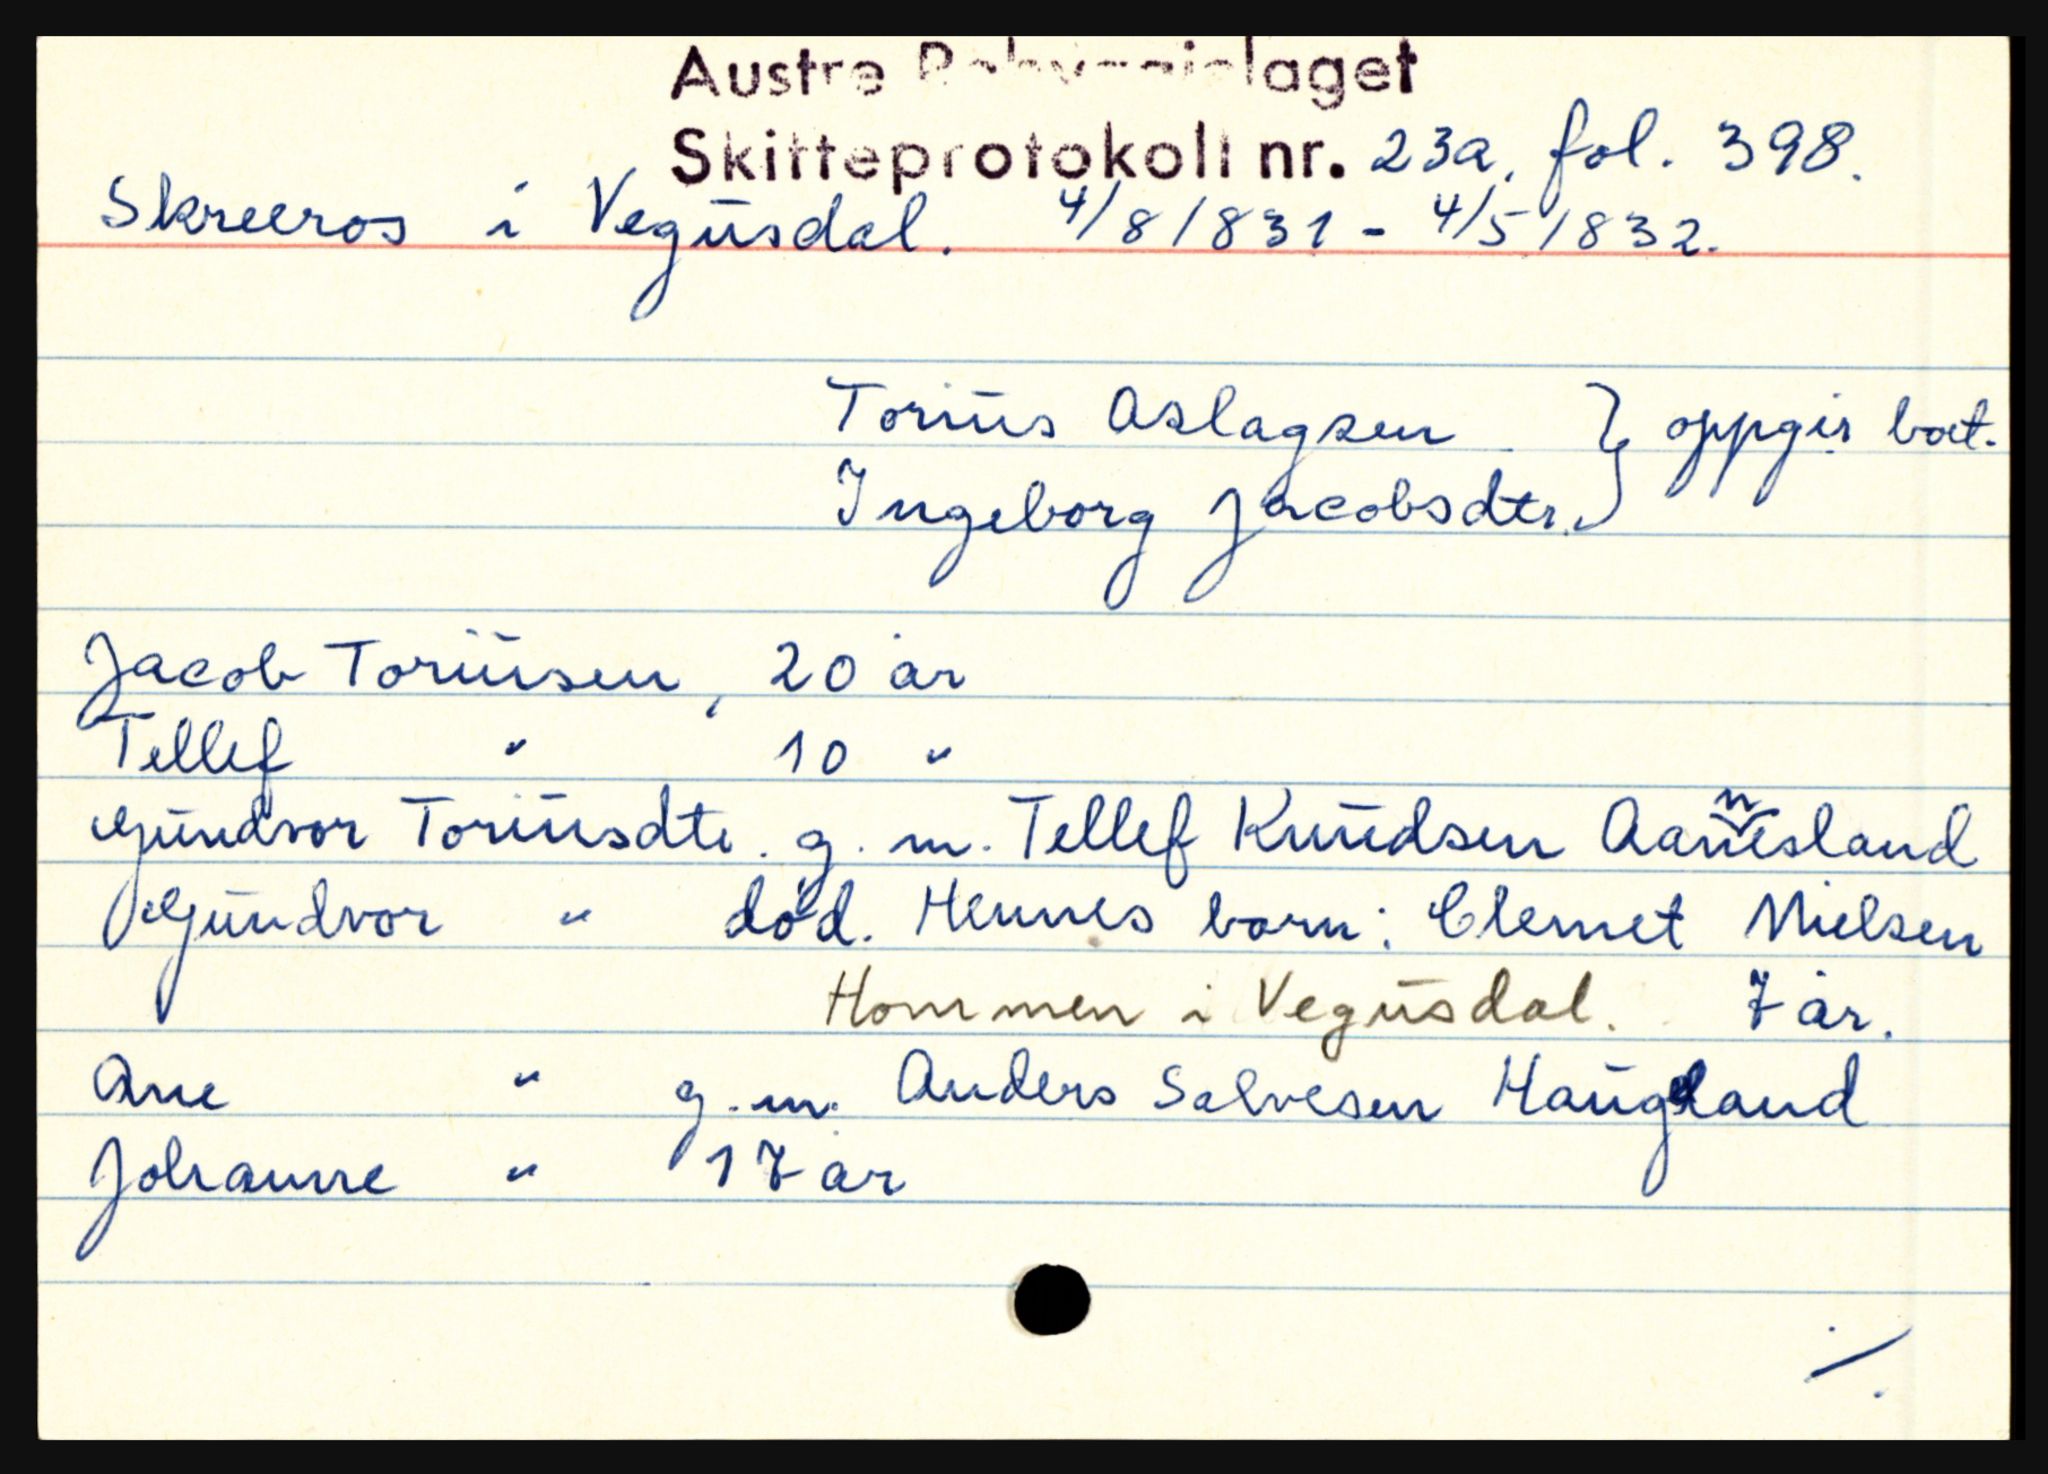 Austre Robyggjelaget
Skifteprotokoll nr. 23a, fol. 398.
Skreeros i Vegusdal. 4/8 1831 - 4/5 1832.
Torius Aslagsen } oppgir boet.
Ingeborg Jacobsdtr.
Jacob Toriusen, 20 år
Tellef " 10 "
Gundvor Toriusdtr. g. m. Tellef Knudsen Aannesland
Gundvor " død. Hennes barn: Clemet Nielsen
Hommen i Vegusdal. 7 år.
Ane " g. m. Anders Salvesen Haugland
Johanne " 17 år